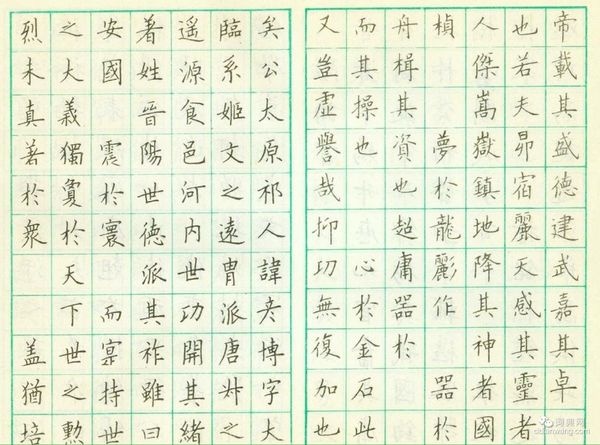 帝載其盛德建武嘉其卓
也若夫昴宿麗天感其靈者
人傑嵩嶽鎮地降其神者國
楨夢於龍作器於
舟楫其資也超庸器於
而其操也心於金石此
又豈虛譽哉抑功無復加也
矣公太原祁人諱彥博字大
臨系姬文之遠冑派唐叔之
遥源食邑河内世功開其緒
著姓晉陽世德派其祚雖曰
安國震於寰而寔持世
之大義獨敻於天下世之勲
烈未真著於衆盖猶培
词典网
cidianwang.com